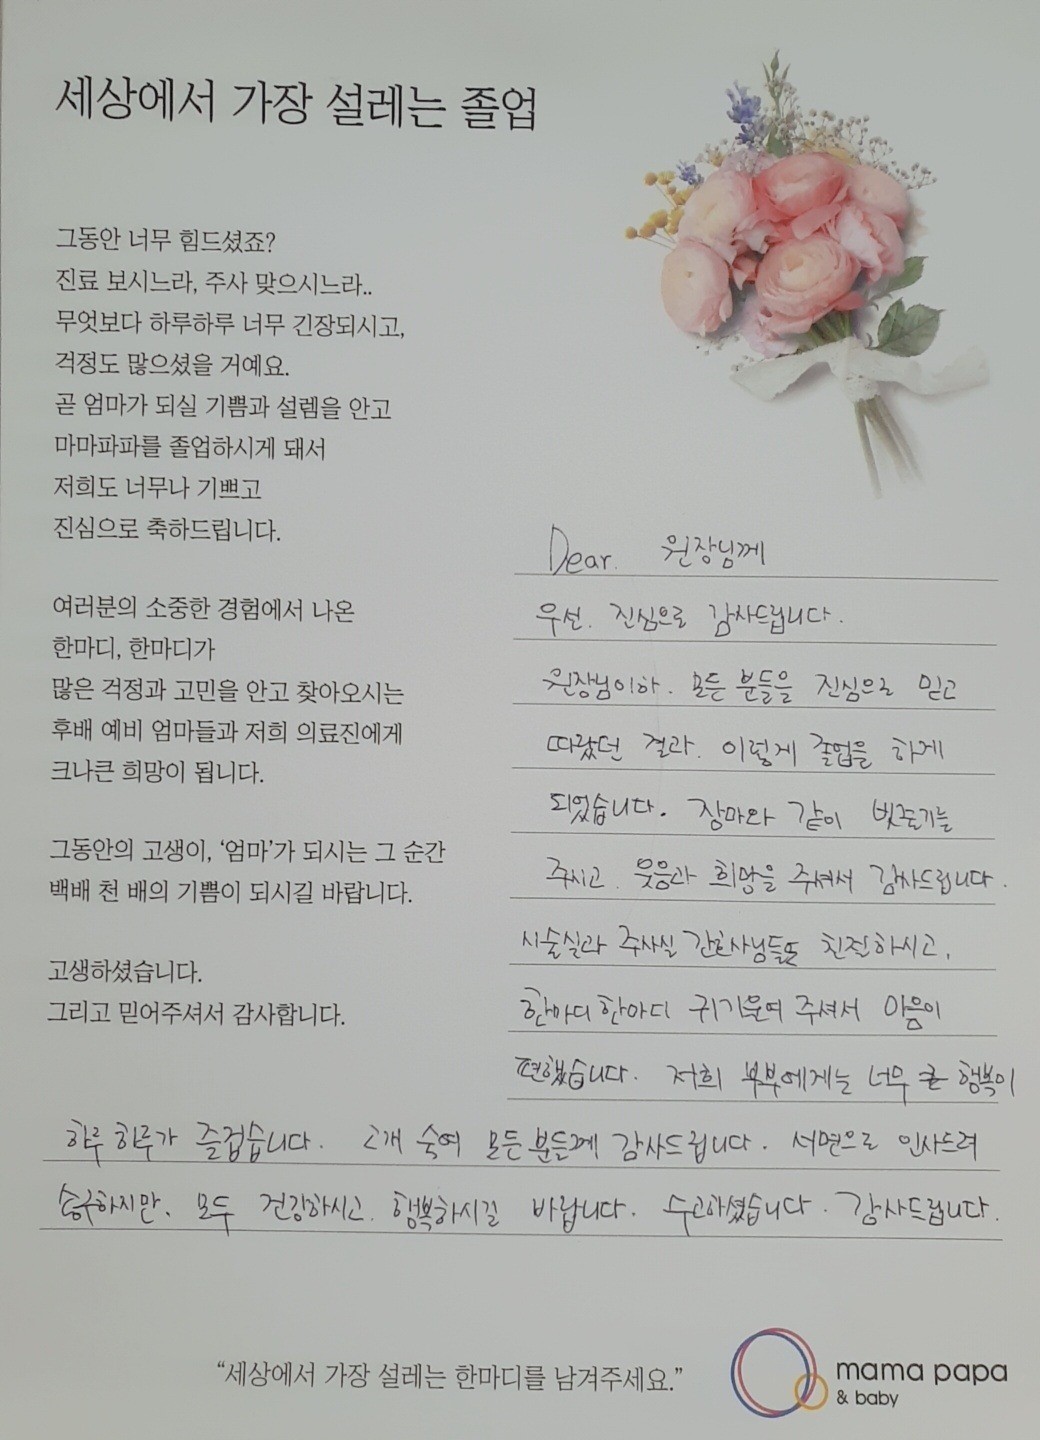 세상에서 가장 설레는 졸업
그동안 너무 힘드셨죠?
진료 보시느라, 주사 맞으시느라..
무엇보다 하루하루 너무 긴장되시고,
걱정도 많으셨을 거예요.
곧 엄마가 되실 기쁨과 설렘을 안고
마마파파를 졸업하시게 돼서
저희도 너무나 기쁘고
진심으로 축하드립니다.
여러분의 소중한 경험에서 나온
한마디, 한마디가
많은 걱정과 고민을 안고 찾아오시는
후배 예비 엄마들과 저희 의료진에게
크나큰 희망이 됩니다.
그동안의 고생이, ‘엄마’가 되시는 그 순간
백배 천 배의 기쁨이 되시길 바랍니다.
고생하셨습니다.
그리고 믿어주셔서 감사합니다.
Dear. 원장님께
우선. 진심으로 감사드립니다.
원장님이하. 모든 분들을 진심으로 믿고
따랐던 결과. 이렇게 졸업을 하게
되었습니다. 장마와 같이 빗줄기를
주시고. 웃음과 희망을 주셔서 감사드립니다.
시술실과 주사실 간호사님들도 친절하시고,
한마디한마디 귀기울여 주셔서 마음이
편했습니다. 저희 부부에게는 너무 큰 행복이
하루하루가 즐겁습니다. 고개 숙여 모든분들께 감사드립니다. 서면으로 인사드려
송구하지만. 모두 건강하시고. 행복하시길 바랍니다. 수고하셨습니다. 감사드립니다.
“세상에서 가장 설레는 한마디를 남겨주세요.”
mama papa
& baby